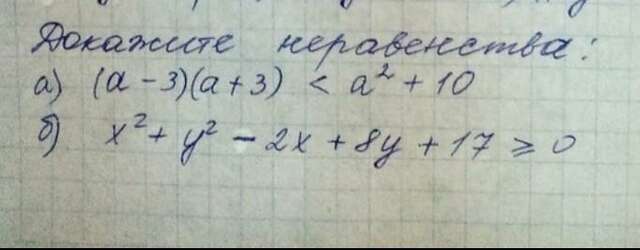 Докажите неравенства:
а) (a - 3)(a + 3) < a² + 10
б) x² + y² - 2x + 8y + 17 ⩾ 0